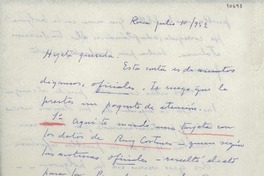 10693
Roma julio 10/952
Hijita querida
Esta carta es de asuntos
digamos, oficiales. Es ruego que le
prestes un poquito de atención.
1º Aquí te mando una tarjeta con
los datos de Ruiz Cortines — quien según
las noticias oficiales — resultó electo
para